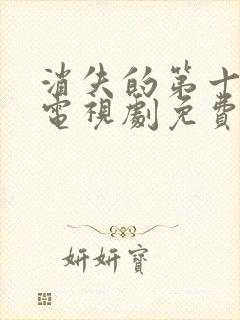 消失的第十
電視劇免費
妍妍寶